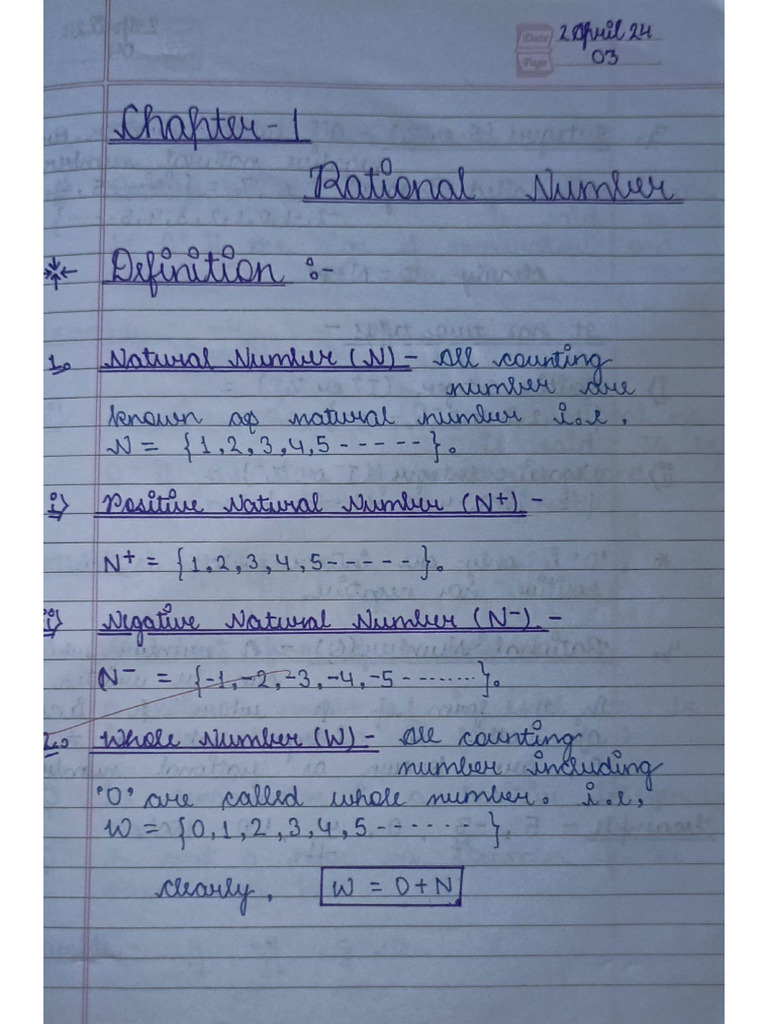 Date 2 April 24
Page 03
Chapter-1
Rational Number
Definition :-
1. Natural Number (N) - All counting
number are
known as natural number i.e,
N = {1,2,3,4,5-----}.
i) Positive Natural Number (N+) -
N+ = {1,2,3,4,5-----}.
ii) Negative Natural Number (N-). -
N- = {-1,-2,-3,-4,-5 -........}.
2. Whole Number (W) - All counting
number including
'0' are called whole number. i.e,
W = {0,1,2,3,4,5-------}
clearly, W = 0+N